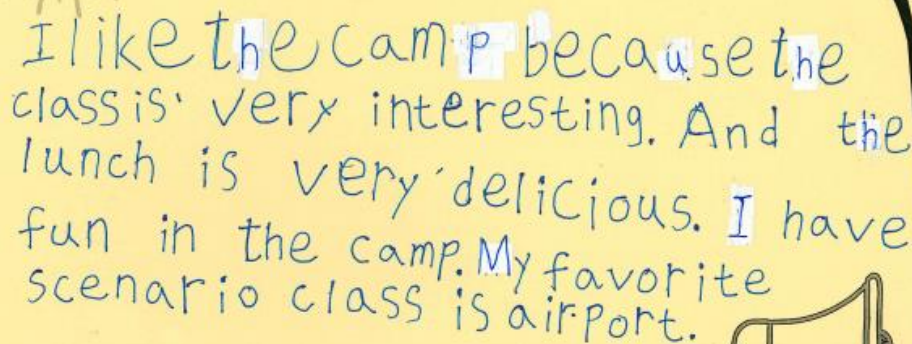 I like the camp because the
class is very interesting. And the
lunch is very delicious. I have
fun in the camp. My favorite
scenario class is airport.